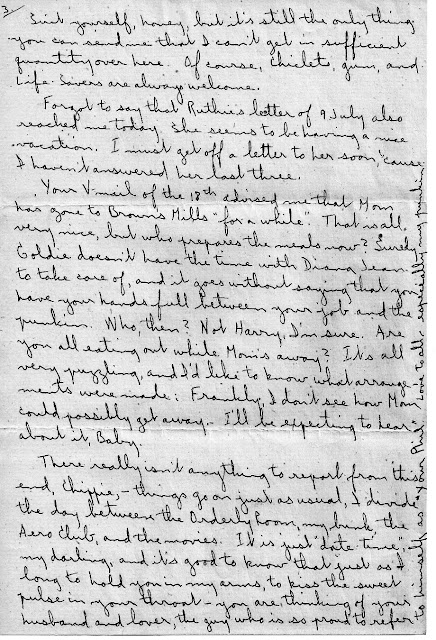 3/
yourself, honey, but it's still the only thing
you can send me that I can't get in sufficient
quantity over here. Of course, Chiclets, gum, and
Life-Savers are always welcome.
Forgot to say that Ruthie's letter of 9 July also
reached me today. She seems to be having a nice
vacation. I must get off a letter to her soon, 'cause
I haven't answered her last three.
Your V-mail of the 18th advised me that Mom
has gone to Browns Mills "for a while". That is all
very nice, but who prepares the meals now? Surely
Goldie doesn't have the time with Diana Jean
to take care of, and it goes without saying that you
have your hands full between your job and the
punkin. Who, then? Not Harry, I'm sure. Are
you all eating out while Mom's away? It's all
very puzzling, and I'd like to know what arrange-
ments were made. Frankly, I don't see how Mom
could possibly get away. I'll be expecting to hear
about it, Baby.
There really isn't anything to report from this
end, Chippie, - things go on just as usual, I divide
the day between the Orderly Room, my bunk, the
Aero Club, and the movies. It is just "date time",
my darling, and it's good to know that just as I
long to hold you in my arms, to kiss the sweet
pulse in your throat - you are thinking of your
husband and lover, the guy who is so proud to refer
to himself as - Your Phil
Love to all, especially my punkin